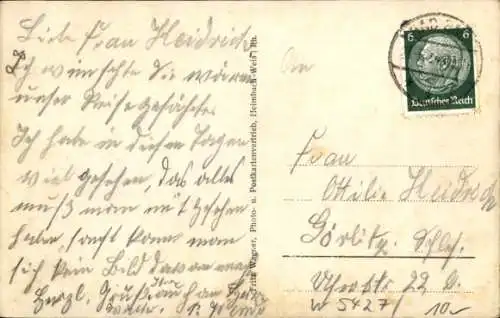 Liebe Frau Heidrich
Ich wünschte Sie wären
unser Reisegefährte.
Ich habe in diesen Tagen
viel gesehen, das alles
muß man mit gesehen
habe, sonst kann man
sich kein Bild davon
Herzl. Gruß auch an
Fritz Wagner, Photo- u. Postkartenvertrieb, Heimbach-Weis/Rh.
An
6 6
Deutsches Reich
Frau
Ottilie Heidrich
Görlitz Schles.
22
W 5427/ 10.-